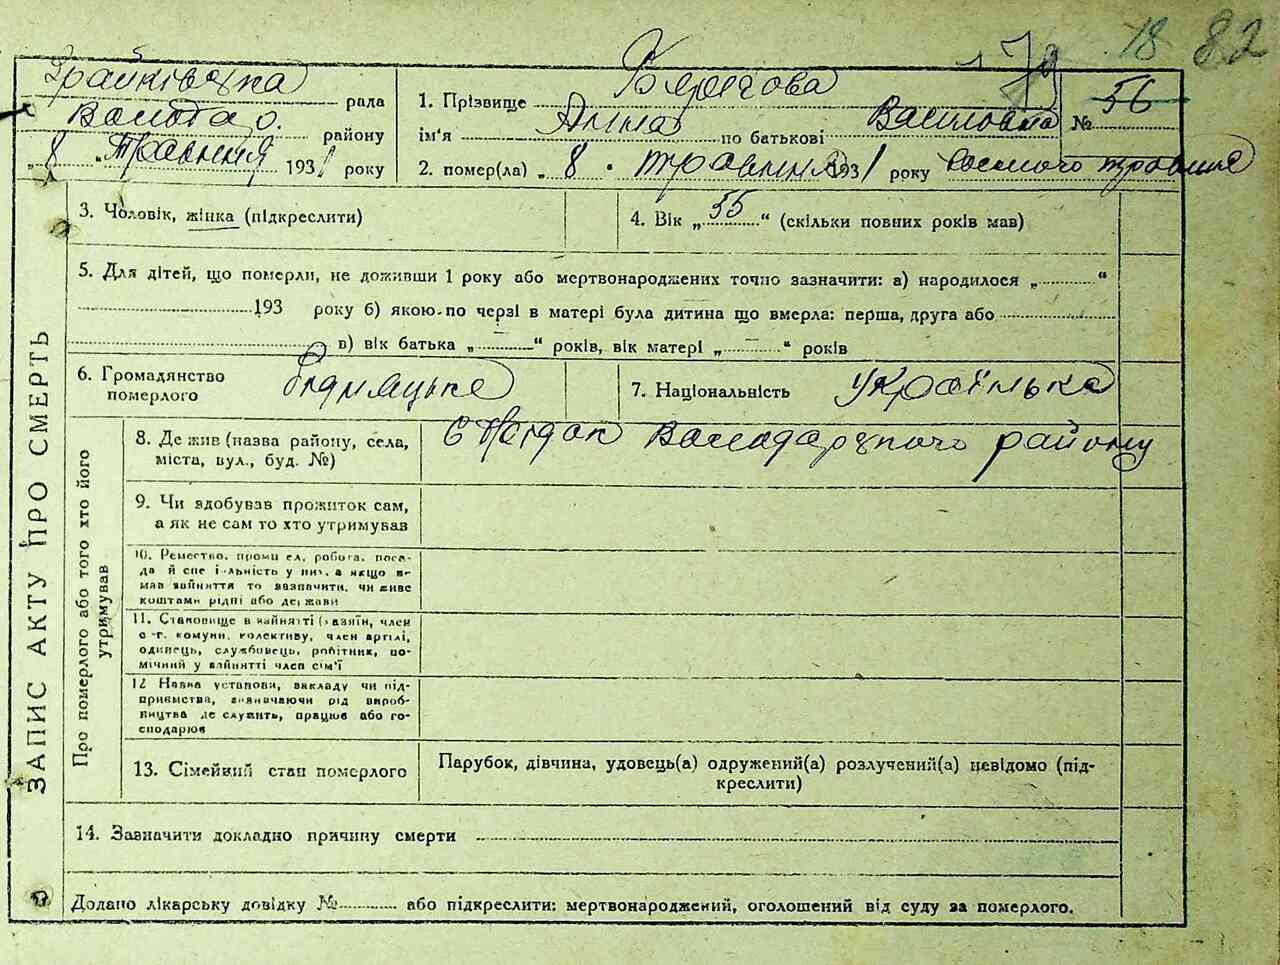 18 82
рада
Волода о. району
„8" Травння 1931 року
1. Прізвище
ім'я Анна по батькові № 56
2. помер(ла) „8" травння 1931 року восмого травння
3. Чоловік, жінка (підкреслити)
4. Вік „55" (скільки повних років мав)
5. Для дітей, що померли, не доживши 1 року або мертвонароджених точно зазначити: а) народилося „ “
193 року б) якою-по черзі в матері була дитина що вмерла: перша, друга або
в) вік батька „—“ років, вік матері „—“ років
6. Громадянство померлого
7. Національність українька
8. Де жив (назва району, села,
міста, вул., буд. №)
Володарзного району
9. Чи здобував прожиток сам,
а як не сам то хто утримував
10. Ремество, промисел, робота, поса-
да й спеціяльність у них, а якщо не
мав зайняття то зазначити, чи живе
коштами рідні або держави
11. Становище в зайнятті (хазяїн, член
с-г. комуни, колективу, член артілі,
одинець, службовець, робітник, по-
мічний у зайнятті член сім'ї
12 Назва установи, закладу чи під-
приємства, визначаючи рід вироб-
ництва де служить, працює або го-
сподарює
13. Сімейний стан померлого
Парубок, дівчина, удовець(а) одружений(а) розлучений(а) невідомо (під-
креслити)
14. Зазначити докладно причину смерти
Додано лікарську довідку № або підкреслити: мертвонароджений, оголошений від суду за померлого.
ЗАПИС АКТУ ПРО СМЕРТЬ
Про померлого або того хто його
утримував